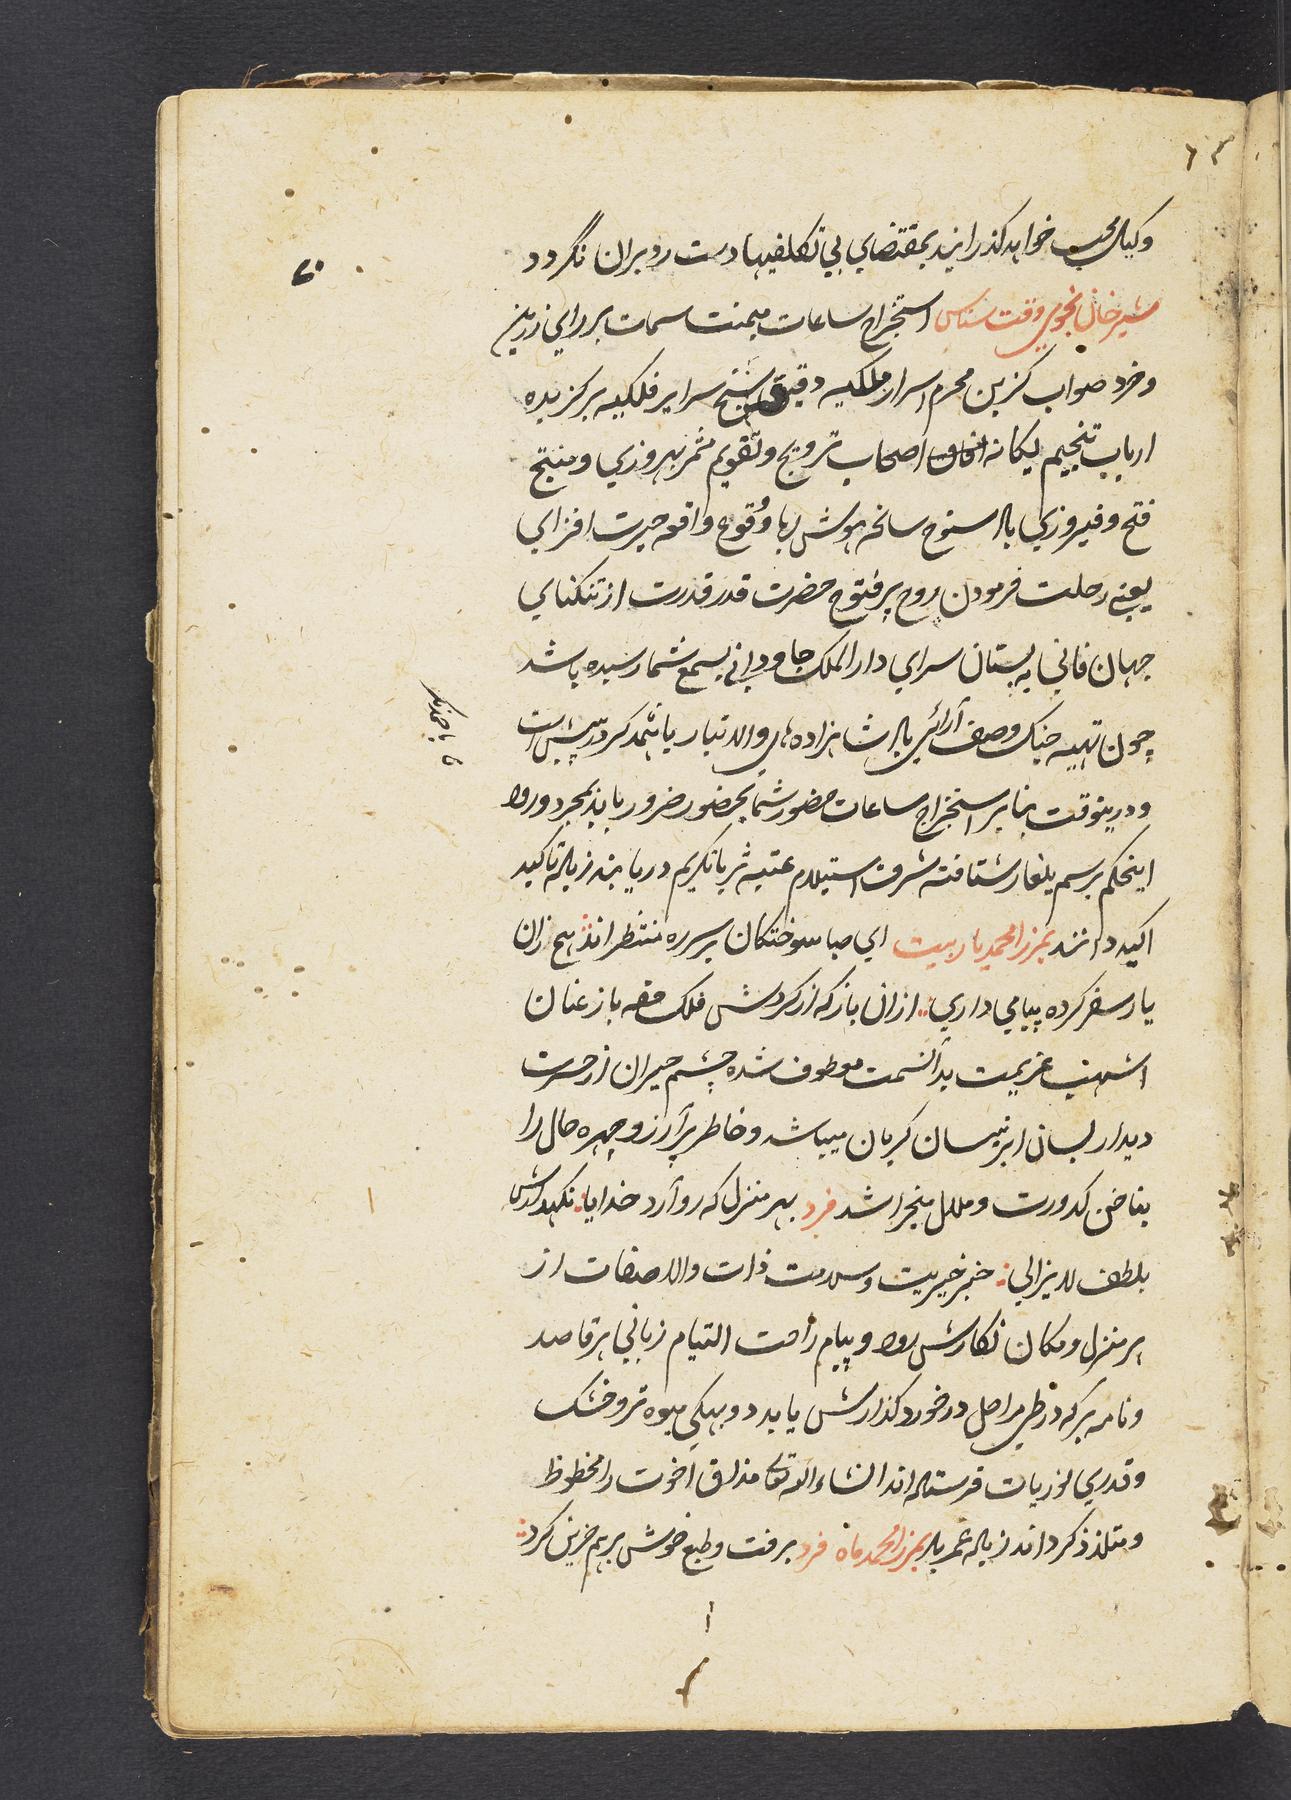 وکیل محب خواهد گذرانید بمقتضای بی تکلفیها دست رد بران نگردد
بشیر خان نجومی وقت شناس استخراج ساعات میمنت سمات بر رای زرین
وخرد صواب گزین محرم اسرار ملکیه دقیقه سنج سرایر فلکیه برگزیده
ارباب تنجیم یگانه آفاق اصحاب ترویج وتقویم مثمر بهروزی ومنتج
فتح وفیروزی باد سنوح سانحه هوش ربا ووقوع واقعه حیرت افزای
یعنی رحلت فرمودن روح پرفتوح حضرت قدر قدرت از تنگنای
جهان فانی به بستان سرای دار الملک جاودانی بسمع شما رسیده باشد
چون تهیه جنگ وصف آرائی با شاهزاده های والا تبار با همدگر درپیش است
ودرینوقت بنابر استخراج ساعات حضور شما بحضور ضرور باید بمجرد ورود
اینحکم برسم یلغار شتافته شرف استیلام عتبه ثریا تکریم دریابند زیاده تاکید
اکید دانند بمرزا محمد یار بیت ای صبا سوختگان بر سر ره منتظراند هیچ ازان
یار سفر کرده پیامی داری ازان باز که از گردش فلک حقه باز عنان
اشهب عزیمت بدانسمت معطوف شده چشم حیران از حسرت
دیدار بسان ابر نیسان گریان میباشد وخاطر پرآرزو چهره حال را
بناخن کدورت وملال میخراشد فرد بهر منزل که رو آرد خدایا نگهدارش
بلطف لایزالی خبر خیریت وسلامت ذات والا صفات از
هر منزل ومکان نگارش رود وپیام راحت التیام زبانی هر قاصد
ونامه بر که در طی مراحل درخورد گذارش یابد دو بهنگی میوه تر وخشک
وقدری لوزیات فرستاده اند انشاء الله تعالی مذاق اخوت را محظوظ
ومتلذذ گرداند زیاده عمر باد بمرزا محمد ماه فرد برفت وطبع خوش برهم حزین کرد